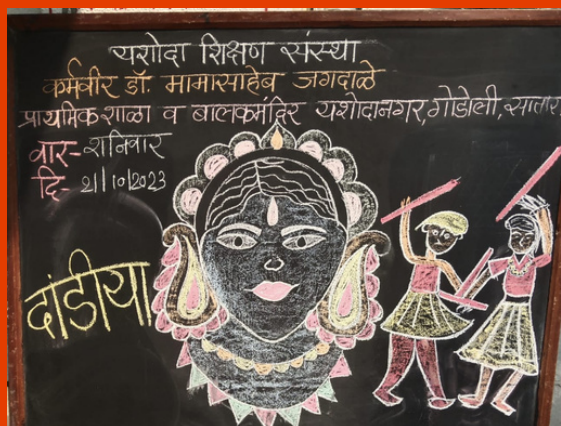 यशोदा शिक्षण संस्था
कर्मवीर डॉ. मामासाहेब जगदाळे
प्राथमिक शाळा व बालकमंदिर यशोदानगर, गोडोली, सातारा
वार- शनिवार
दि- 21/10/2023
दांडीया